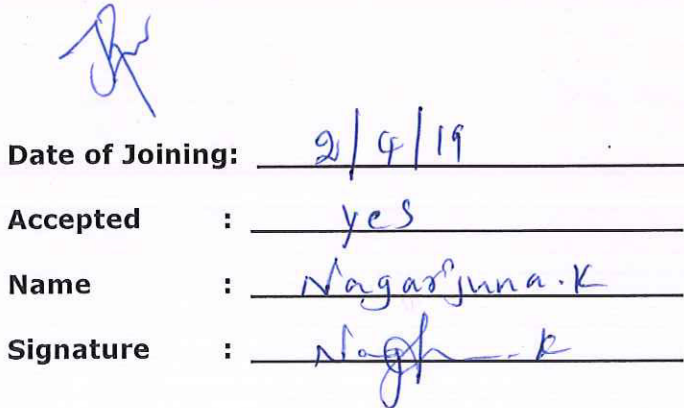 Date of Joining: 2/4/19
Accepted : yes
Name : Nagarjuna.K
Signature :